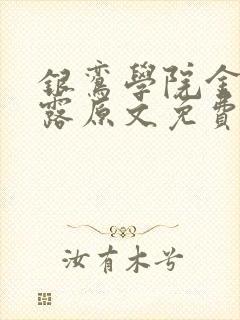 銀鸞學院金
露原文免費
汝有木兮